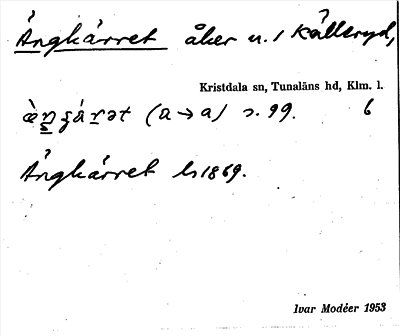 Ängkärret åker n. 1 Källeryd,
Kristdala sn, Tunaläns hd, Klm. l.
(a → a) s. 99. 6
Ängkärret ls 1869.
Ivar Modéer 1953